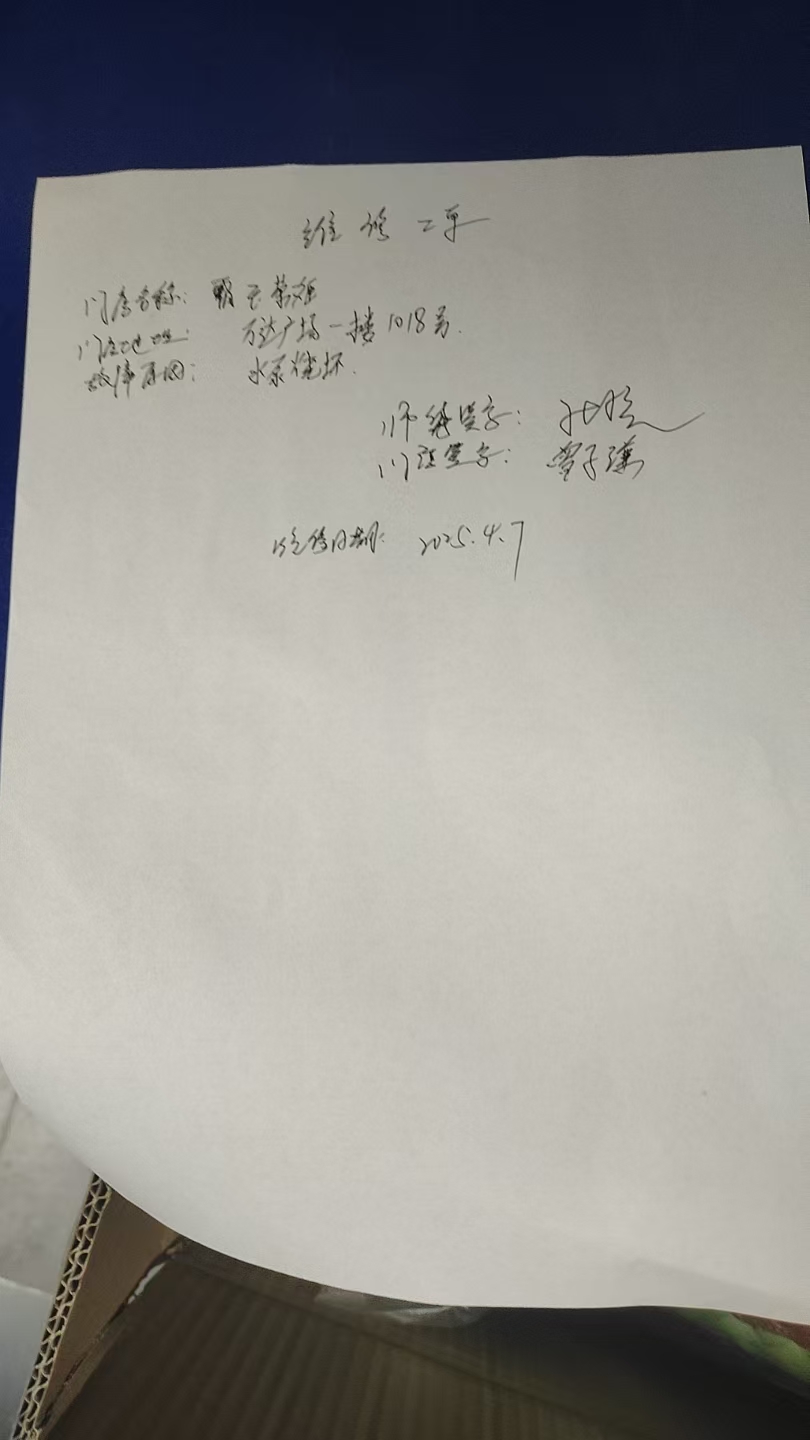 维修工单
门店名称: 霸王茶姬
门店地址: 万达广场一楼1018号.
故障原因: 水泵烧坏.
师傅签字:
门店签字: 曾子
维修日期: 2025.4.7